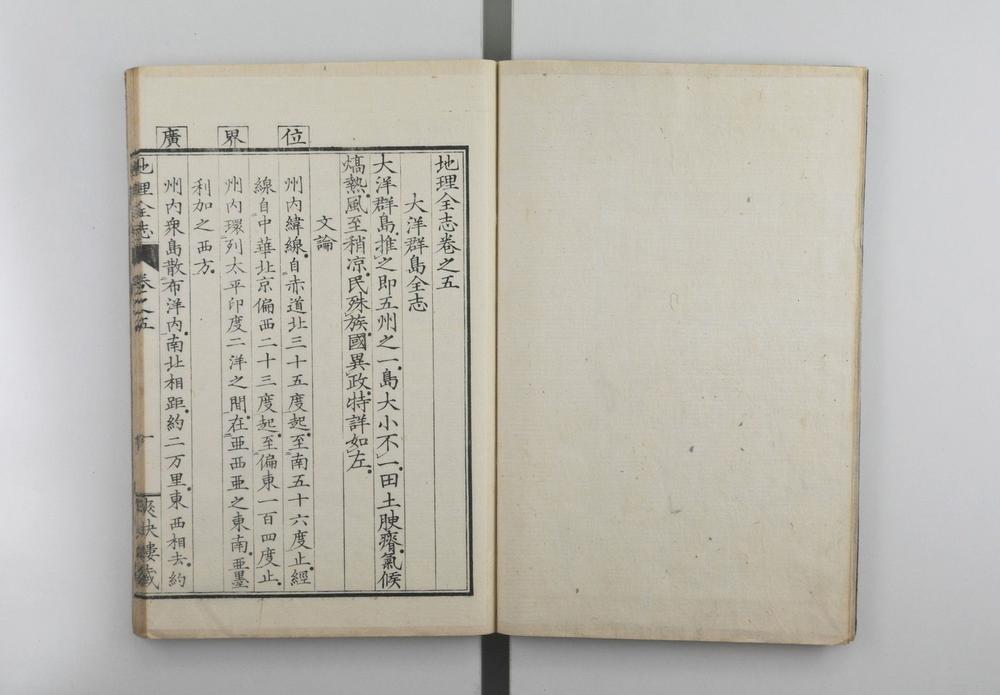 地理全志卷之五
大洋群島全志
大洋群島推之即五州之一島大小不一田土腴瘠氣候
熇熱風至稍凉民殊族國異政特詳如左
文論
位
州內緯線自赤道北三十五度起至南五十六度止經
線自中華北京偏西二十三度起至偏東一百四度止
界
州內環列太平印度二洋之間在亜西亜之東南亜墨
利加之西方
廣
州內衆島散布洋內南北相距約二万里東西相去約
地理全志 卷之五
爽快樓藏